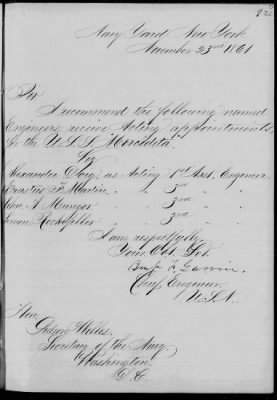 Navy Yard New York
November 23rd 1861
Sir
I recommend the following named
Engineers receive Acting appointments
for the U.S.S.
Viz
Alexander Doig as Acting 1st Asst. Engineer
Erastus F. Martin " " 2nd " "
A. Munger " " 3rd " "
Simon Rockefeller " " 3rd " "
I am respectfully
Your Obt. Svt.
Benj. F. Garvin.
Chief Engineer
U.S.N.
Hon.
Gideon Welles,
Secretary of the Navy
Washington
D.C.